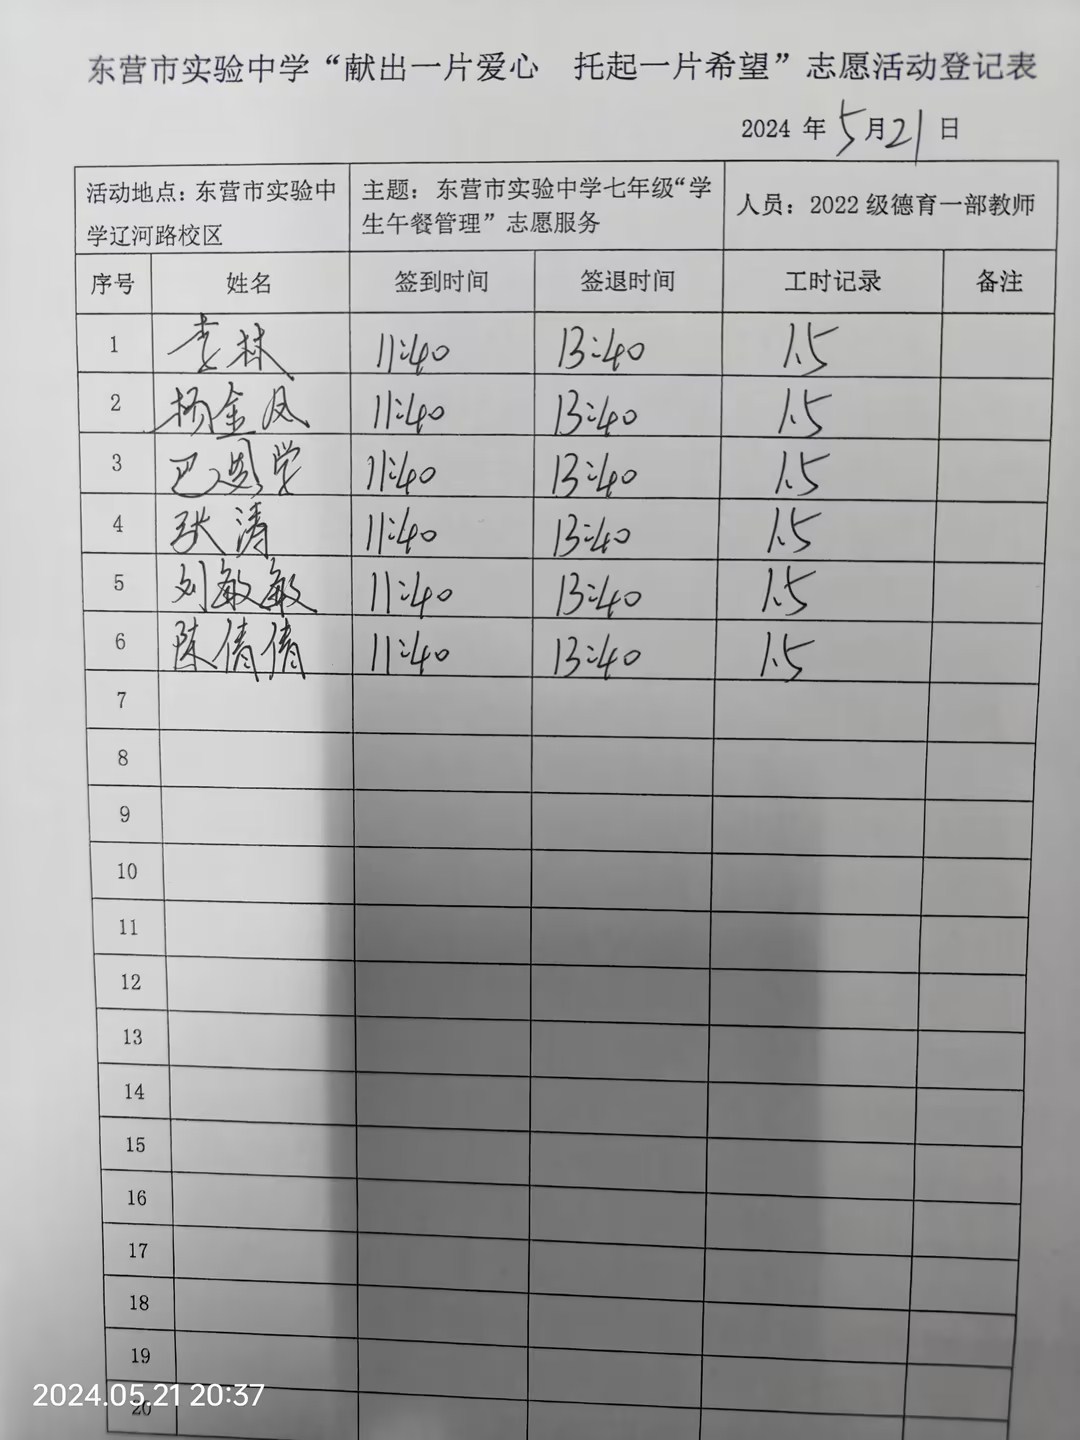 东营市实验中学“献出一片爱心 托起一片希望”志愿活动登记表
2024 年 5 月 21 日
活动地点：东营市实验中学辽河路校区 主题：东营市实验中学七年级“学生午餐管理”志愿服务 人员：2022 级德育一部教师
序号 姓名 签到时间 签退时间 工时记录 备注
1 李林 11:40 13:40 1.5
2 杨金凤 11:40 13:40 1.5
3 巴学 11:40 13:40 1.5
4 张涛 11:40 13:40 1.5
5 刘敏敏 11:40 13:40 1.5
6 陈倩倩 11:40 13:40 1.5
7
8
9
10
11
12
13
14
15
16
17
18
19
20
2024.05.21 20:37